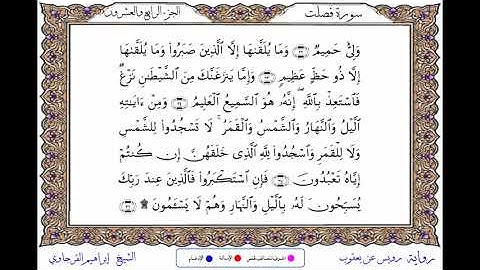 سورة فصلت
الجزء الرابع والعشرون
وَلِيٌّ حَمِيمٌ وَمَا يُلَقَّىٰهَا إِلَّا ٱلَّذِينَ صَبَرُوا۟ وَمَا يُلَقَّىٰهَا
إِلَّا ذُو حَظٍّ عَظِيمٍ وَإِمَّا يَنزَغَنَّكَ مِنَ ٱلشَّيْطَٰنِ نَزْغٌ
فَٱسْتَعِذْ بِٱللَّهِ إِنَّهُۥ هُوَ ٱلسَّمِيعُ ٱلْعَلِيمُ وَمِنْ ءَايَٰتِهِ
ٱلَّيْلُ وَٱلنَّهَارُ وَٱلشَّمْسُ وَٱلْقَمَرُ لَا تَسْجُدُوا۟ لِلشَّمْسِ
وَلَا لِلْقَمَرِ وَٱسْجُدُوا۟ لِلَّهِ ٱلَّذِى خَلَقَهُنَّ إِن كُنتُمْ
إِيَّاهُ تَعْبُدُونَ فَإِنِ ٱسْتَكْبَرُوا۟ فَٱلَّذِينَ عِندَ رَبِّكَ
يُسَبِّحُونَ لَهُۥ بِٱلَّيْلِ وَٱلنَّهَارِ وَهُمْ لَا يَسْـَٔمُونَ ۩
رواية رويس عن يعقوب
الإمالة
الإدغام
الشيخ إبراهيم الفرجاوي